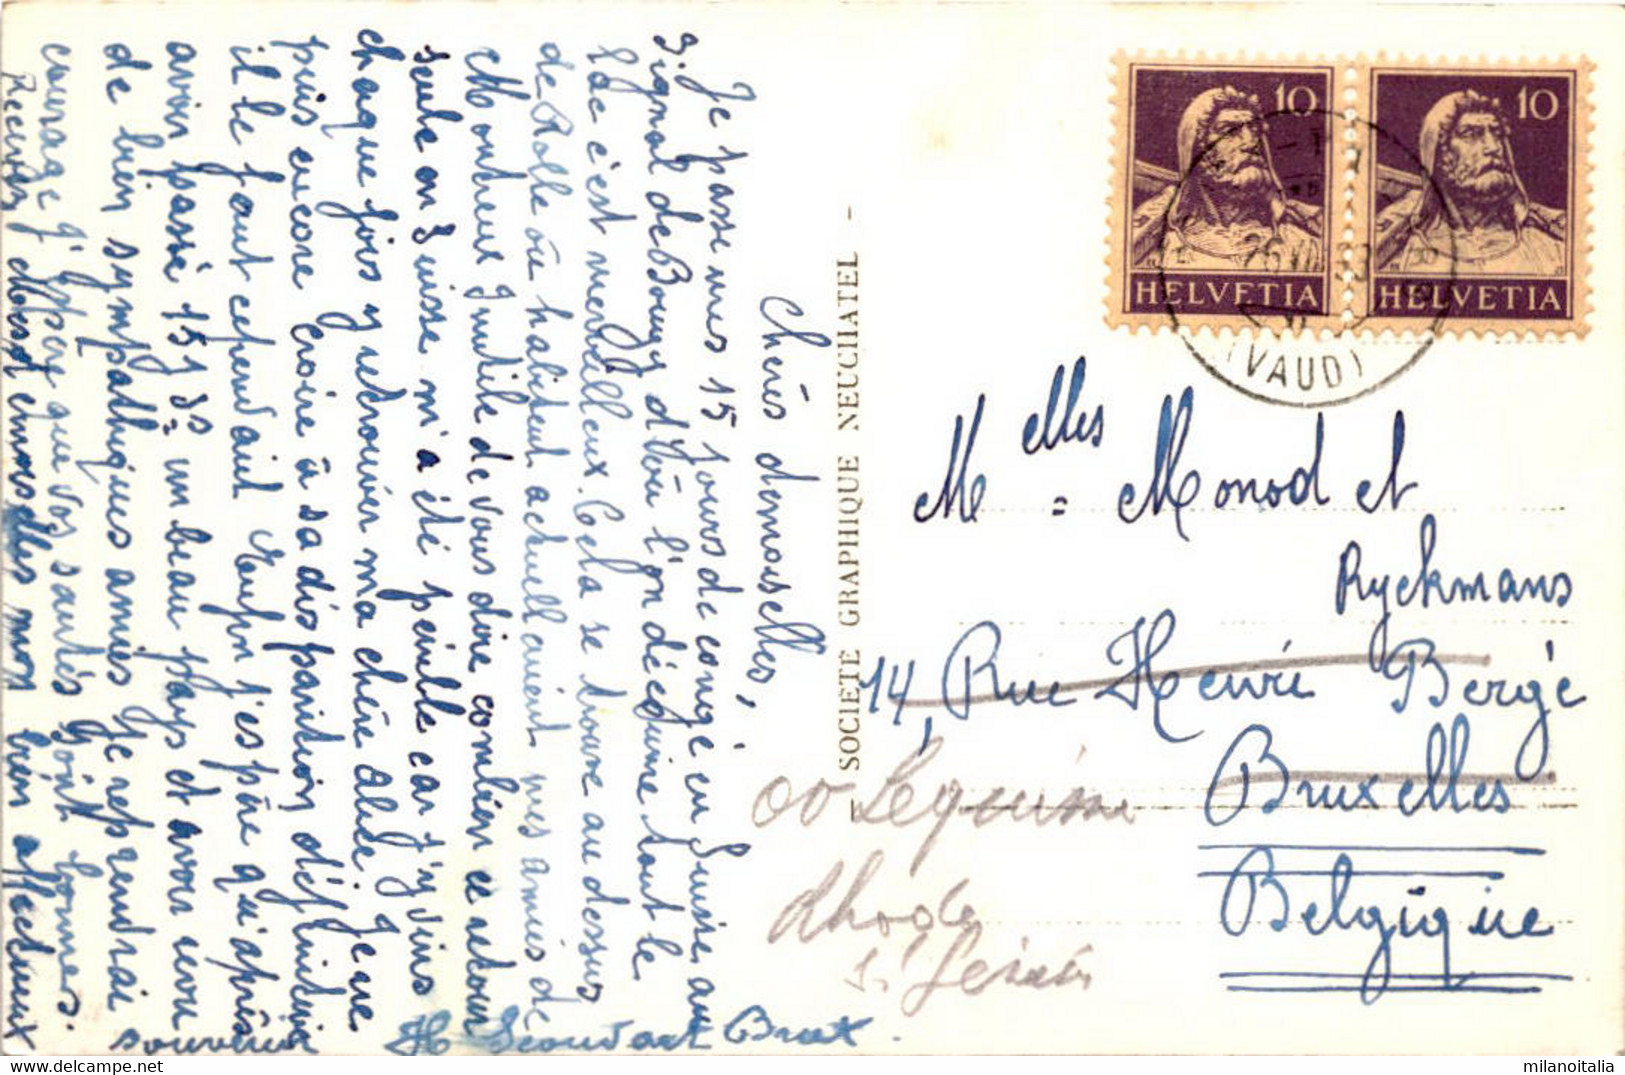 Chères demoiselles,
Je passe mes 15 jours de congé en Suisse au
Signal de Bougy d'où l'on découvre tout le
lac c'est merveilleux. Cela se trouve au dessus
de Rolle où habitent actuellement mes amis de
Montreux Inutile de vous dire combien ce retour
seule en Suisse m'a été pénible car j'y vins
chaque fois y retrouver ma chère Alice! Je ne
puis encore croire à sa disparition définitive
il le faut cependant Enfin j'espère qu'après
avoir passé 15 jrs un beau pays et avoir revu
de bien sympathiques amies je reprendrai
courage J'espère que vos santés sont bonnes.
Recevez chères demoiselles mon bien affectueux
souvenir H
SOCIETE GRAPHIQUE NEUCHATEL –
10
10
HELVETIA
HELVETIA
(VAUD)
Melles = Monod et
Ryckmans
14, Rue Henri Bergé
Bruxelles
Belgique
Rhode
milanoitalia